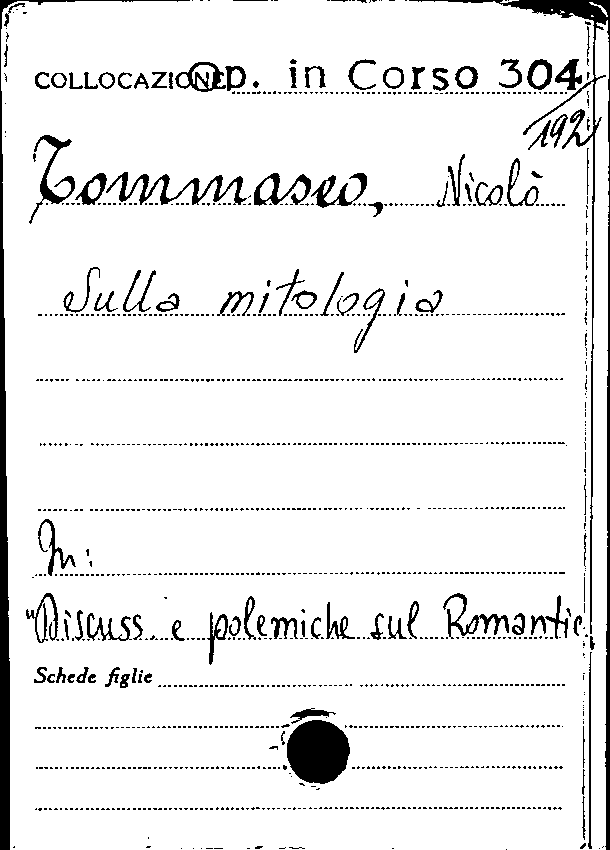 COLLOCAZIONE Op. in Corso 304
/192
Tommaseo, Nicolò
Sulla mitologia
In:
"Discuss. e polemiche sul Romantic.
Schede figlie